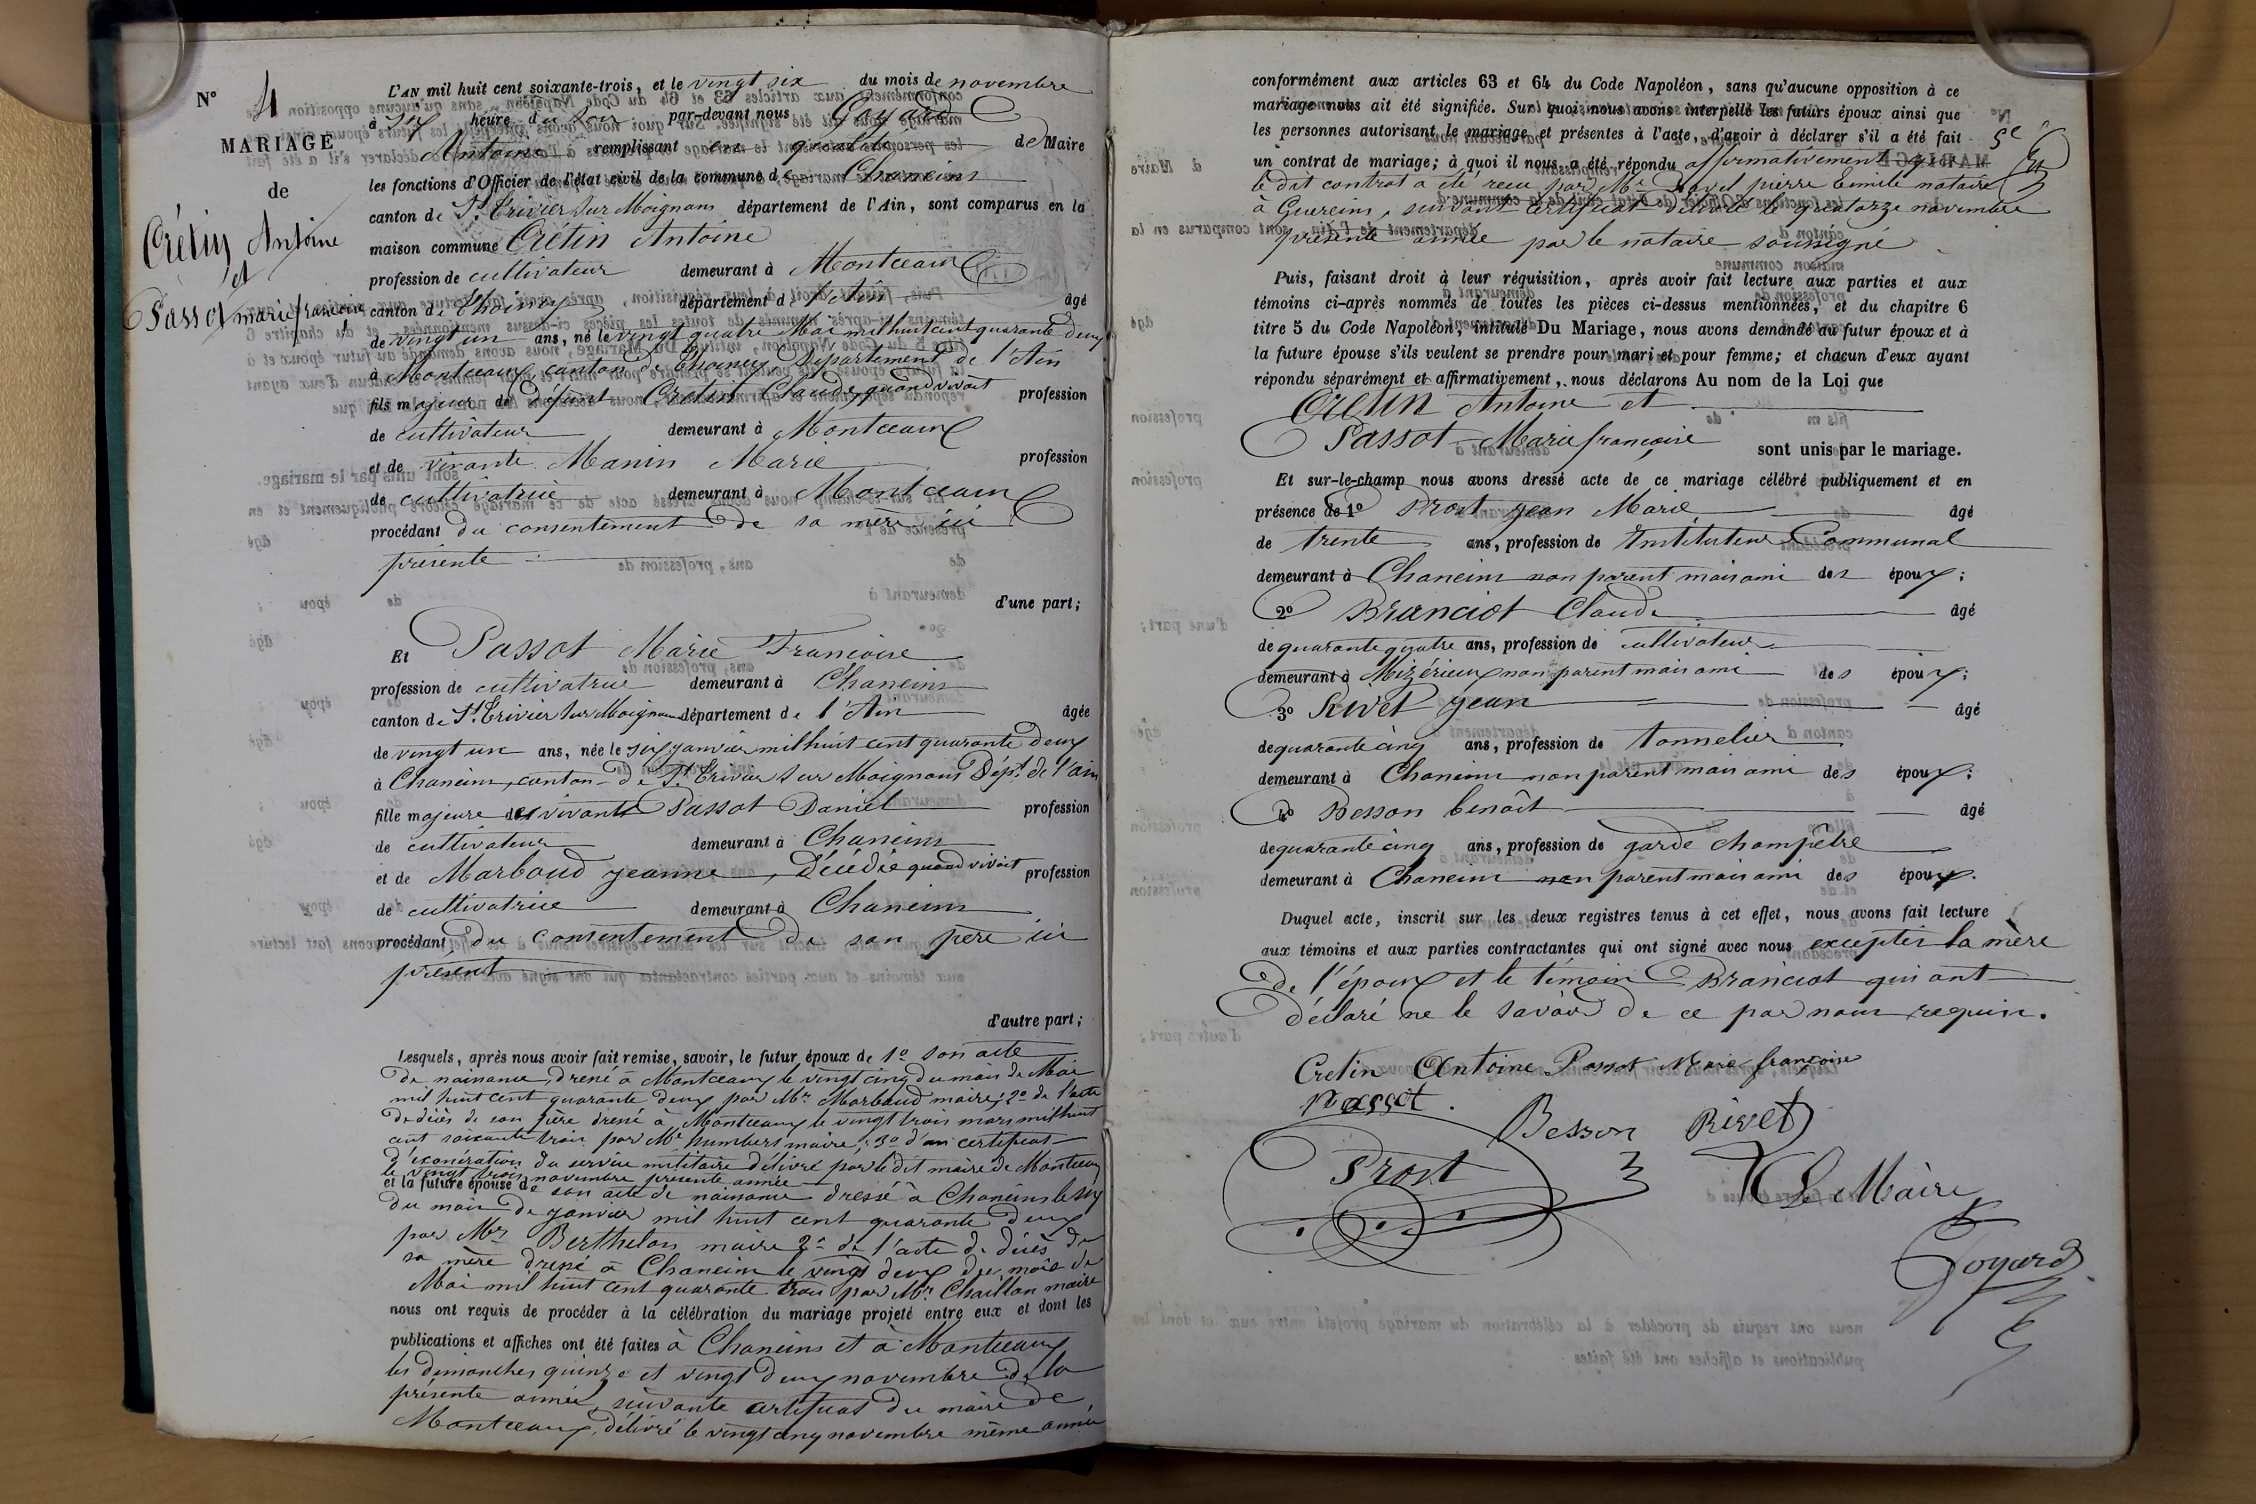 N° 4
MARIAGE
de
Crétin Antoine
et
Passot marie françoise
L'AN mil huit cent soixante-trois, et le vingt six du mois de novembre
à six heure du soir par-devant nous Goyard
Antoine remplissant en qualité de Maire
les fonctions d'Officier de l'état civil de la commune de Chaneins
canton de St Trivier sur Moignans département de l'Ain, sont comparus en la
maison commune Crétin Antoine
profession de cultivateur demeurant à Montceaux
canton de Thoissey département de l'Ain âgé
de vingt un ans, né le vingt quatre Mai mil huit cent quarante deux
à Montceaux, canton de Thoissey Département de l'Ain
fils majeur de défunt Crétin Claude, quand vivait profession
de cultivateur demeurant à Montceaux
et de vivante Manin Marie profession
de cultivatrice demeurant à Montceaux
procédant du consentement de sa mère ici
présente
d'une part;
Et Passot Marie Francoise
profession de cultivatrice demeurant à Chaneins
canton de St Trivier sur Moignans département de l'Ain âgée
de vingt un ans, née le six janvier mil huit cent quarante deux
à Chaneins, canton de St Trivier sur Moignans Dépt de l'ain
fille majeure de vivant Passot Daniel profession
de cultivateur demeurant à Chaneins
et de Marbaud jeanne, Décédée quand vivait profession
de cultivatrice demeurant à Chaneins
procédant du consentement de son père ici
présent
d'autre part;
Lesquels, après nous avoir fait remise, savoir, le futur époux de 1° son acte
de naissance dressé à Montceaux le vingt cinq du mois de Mai
mil huit cent quarante deux par Mr Marbaud maire; 2° de l'acte
de décès de son père dressé à Montceaux le vingt trois mars mil huit
cent soixante trois par Mr humbert maire; 3° d'un certificat
d'exonération du service militaire délivré par le dit maire de Montceaux
le vingt trois novembre présente année
et la future épouse de son acte de naissance dressé à Chaneins le six
du mois de janvier mil huit cent quarante deux
par Mr Berthelon maire 2° de l'acte de décès de
sa mère dressé à Chaneins le vingt deux du mois de
Mai mil huit cent quarante trois par Mr Chaillon maire
nous ont requis de procéder à la célébration du mariage projeté entre eux et dont les
publications et affiches ont été faites à Chaneins et à Montceaux
les dimanches quinze et vingt deux novembre de la
présente année, suivante certificat du maire de
Montceaux, délivré le vingt cinq novembre même année
conformément aux articles 63 et 64 du Code Napoléon, sans qu'aucune opposition à ce
mariage nous ait été signifiée. Sur quoi nous avons interpellé les futurs époux ainsi que
les personnes autorisant le mariage et présentes à l'acte, d'avoir à déclarer s'il a été fait
un contrat de mariage; à quoi il nous a été répondu affirmativement que
le dit contrat a été recu par Me Novel pierre Emile notaire
à Guereins, suivant certificat délivré le quatorze novembre
présente année par le notaire soussigné
Puis, faisant droit à leur réquisition, après avoir fait lecture aux parties et aux
témoins ci-après nommés de toutes les pièces ci-dessus mentionnées, et du chapitre 6
titre 5 du Code Napoléon, intitulé Du Mariage, nous avons demandé au futur époux et à
la future épouse s'ils veulent se prendre pour mari et pour femme; et chacun d'eux ayant
répondu séparément et affirmativement, nous déclarons Au nom de la Loi que
Crétin Antoine et
Passot Marie françoise sont unis par le mariage.
Et sur-le-champ nous avons dressé acte de ce mariage célébré publiquement et en
présence de 1° Prost jean Marie âgé
de trente ans, profession de Instituteur Communal
demeurant à Chaneins non parent mais ami des époux;
2° Branciot Claude âgé
de quarante quatre ans, profession de cultivateur
demeurant à Mizérieux non parent mais ami des époux;
3° Rivet jean âgé
de quarante cinq ans, profession de tonnelier
demeurant à Chaneins non parent mais ami des époux;
4° Besson benoît âgé
de quarante cinq ans, profession de garde champêtre
demeurant à Chaneins non parent mais ami des époux.
Duquel acte, inscrit sur les deux registres tenus à cet effet, nous avons fait lecture
aux témoins et aux parties contractantes qui ont signé avec nous exceptés la mère
de l'époux et le témoin Branciot qui ont
déclaré ne le savoir de ce par nous requis.
Cretin Antoine Passot Marie françoise
passot. Besson Rivet
Prost Le Maire
Goyard